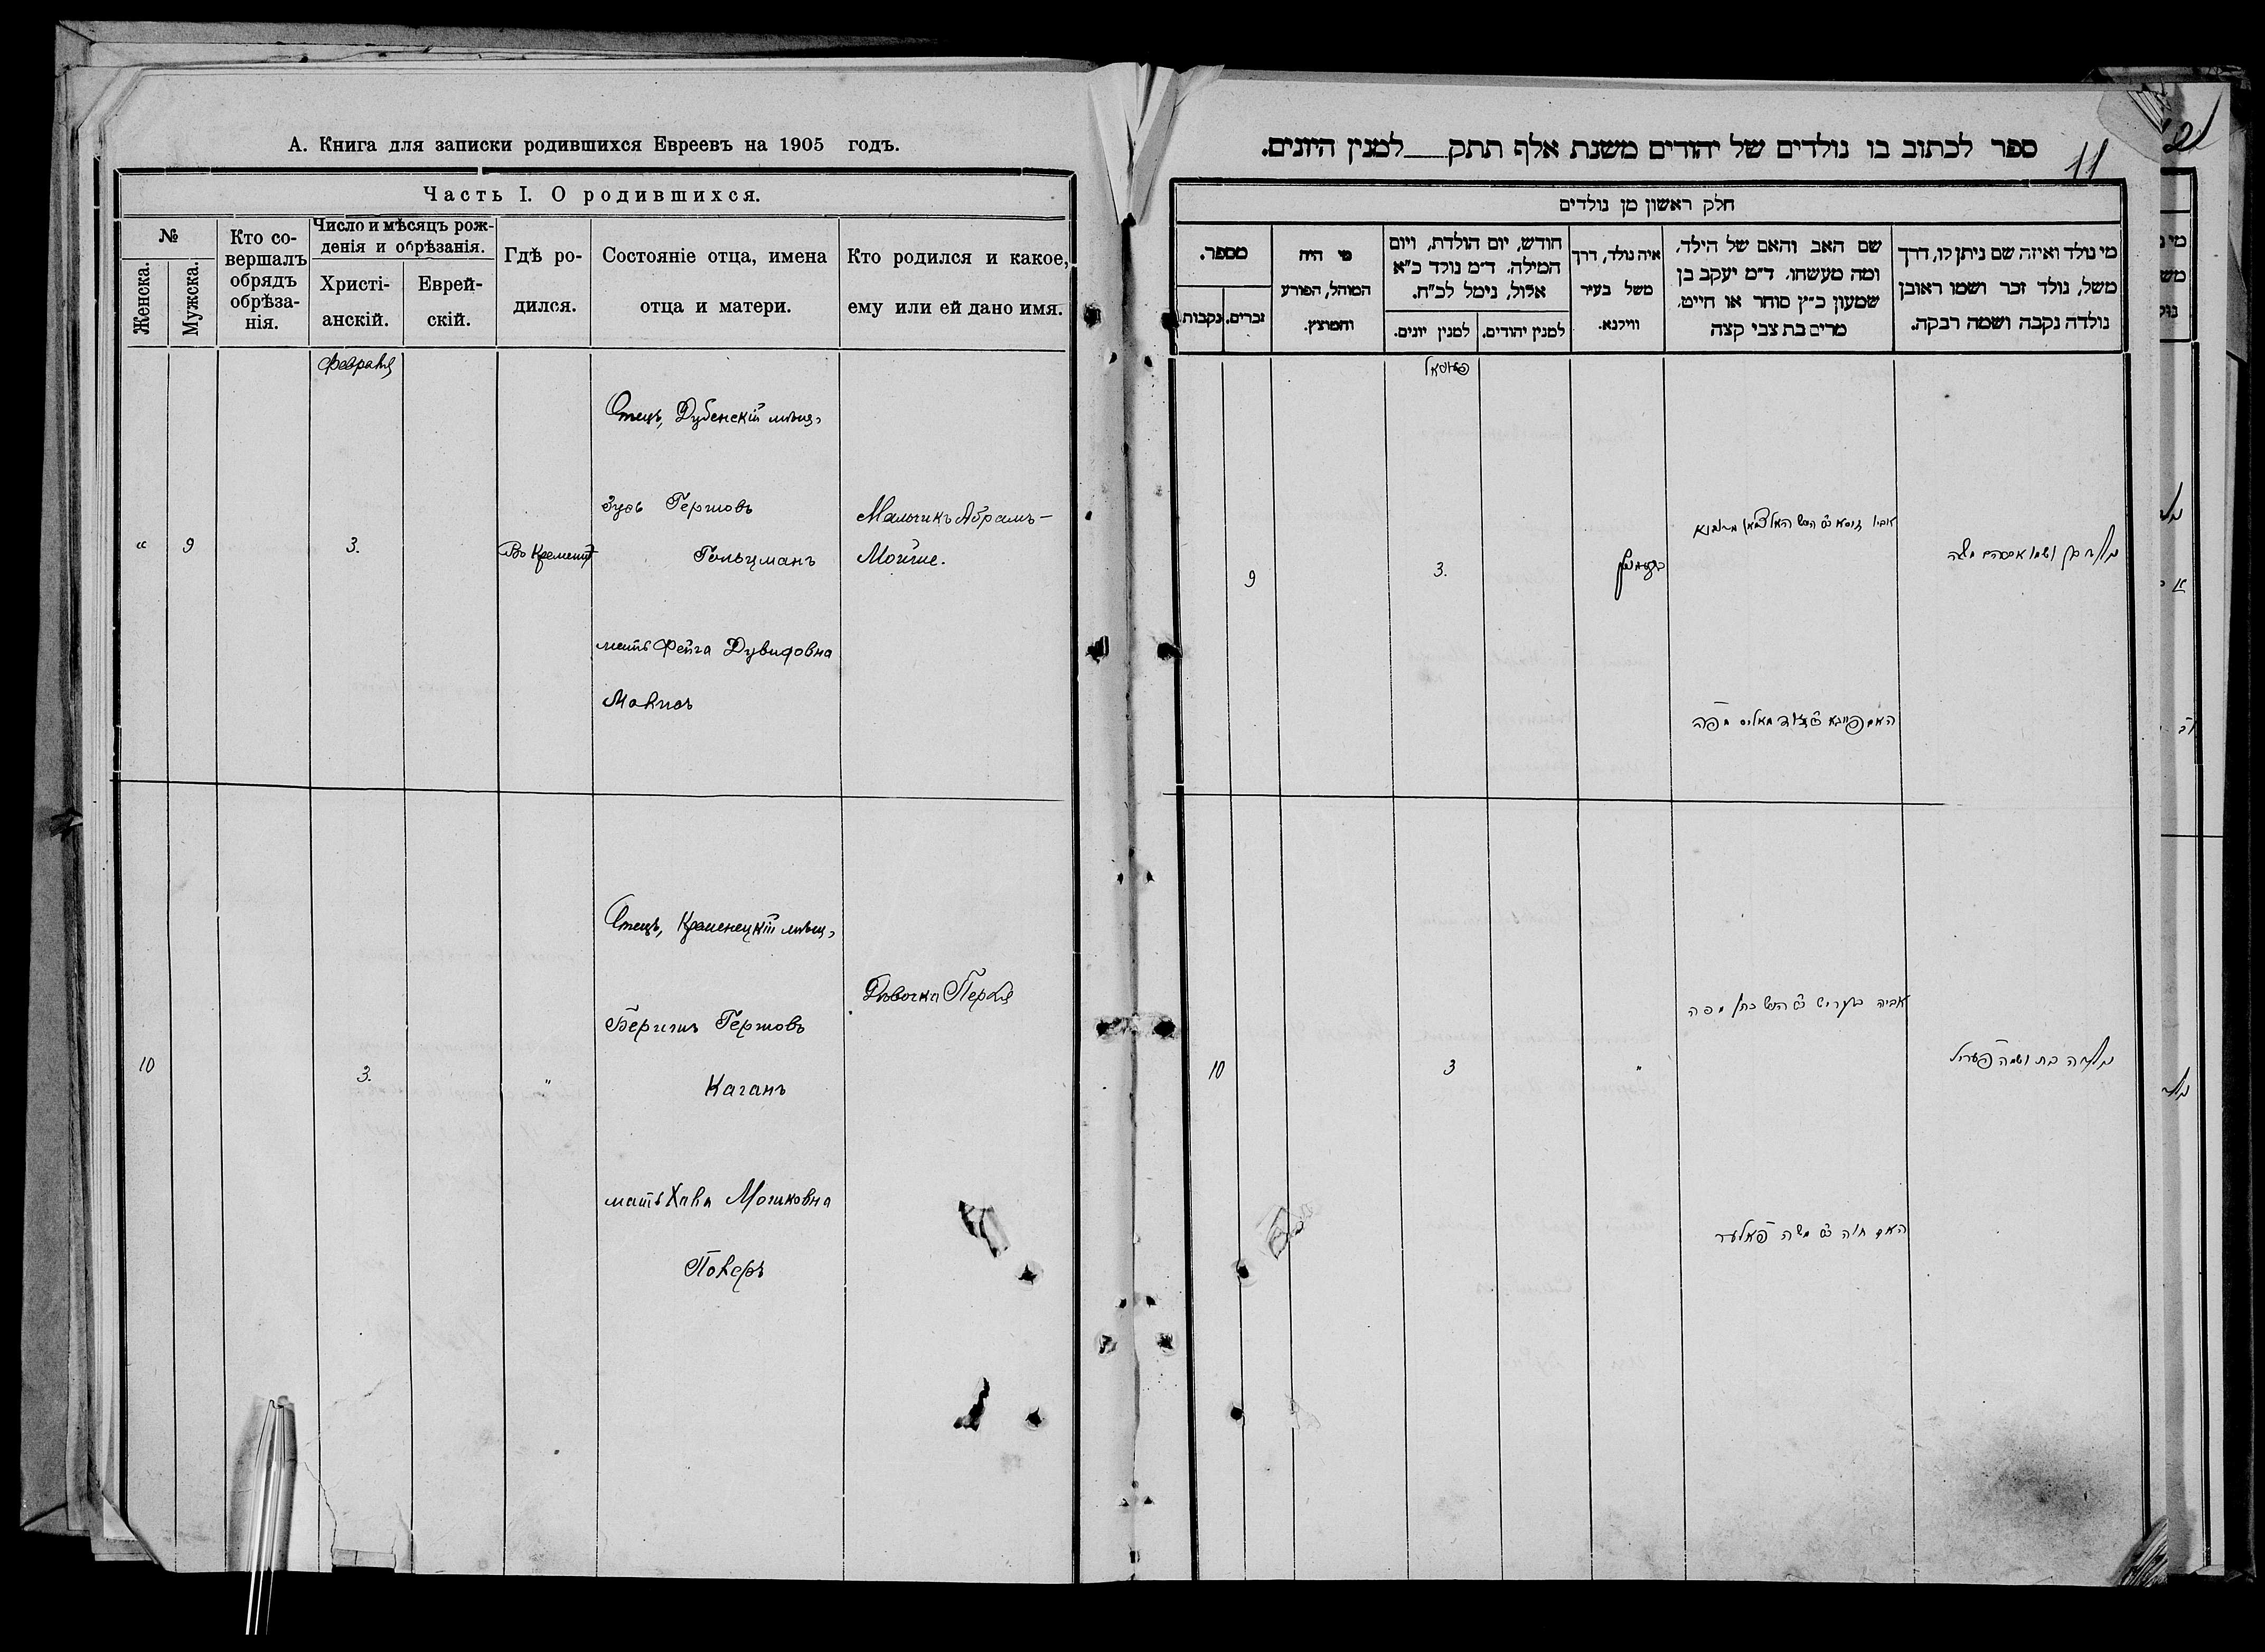 А. Книга для записки родившихся Евреевъ на 1905 годъ.
Часть I. О родившихся.
№
Женска.
Мужска.
Кто со-
вершалъ
обрядъ
обрѣза-
нія.
Число и мѣсяцъ рож-
денія и обрѣзанія.
Христі-
анскій.
Еврей-
скій.
Гдѣ ро-
дился.
Состояніе отца, имена
отца и матери.
Кто родился и какое,
ему или ей дано имя.
Февраля
"
9
3.
Отецъ, Дубенскій мѣщ.
Зусь Гершовъ
Гольцманъ
мать Фейга Дувидовна
Мальчикъ Абрамъ-
Мойше.
10
3.
"
Отецъ, Кременецкій мѣщ.
Гершовъ
Каганъ
мать Хава Мошковна
Дѣвочка Перля
ספר לכתוב בו נולדים של יהודים משנת אלף תתק__ למנין היונים.
11
חלק ראשון מן נולדים
מי נולד ואיזה שם ניתן לו, דרך
משל, נולד זכר ושמו ראובן
נולדה נקבה ושמה רבקה.
שם האב והאם של הילד,
ומה מעשהו. ד"מ יעקב בן
שמעון כ"ץ סוחר או חייט,
מרים בת צבי קצה
איה נולד, דרך
משל בעיר
ווילנא.
חודש, יום הולדת, ויום
המילה. ד"מ נולד כ"א
אלול, נימל לכ"ח.
למנין יהודים.
למנין יונים.
מי היה
המוהל, הפורע
והמוצץ.
מספר.
זכרים.
נקבות.
9
3.
נולד בן ושמו אברהם משה
10
3
"
נולדה בת ושמה פערל
האם חוה בת משה פאלער